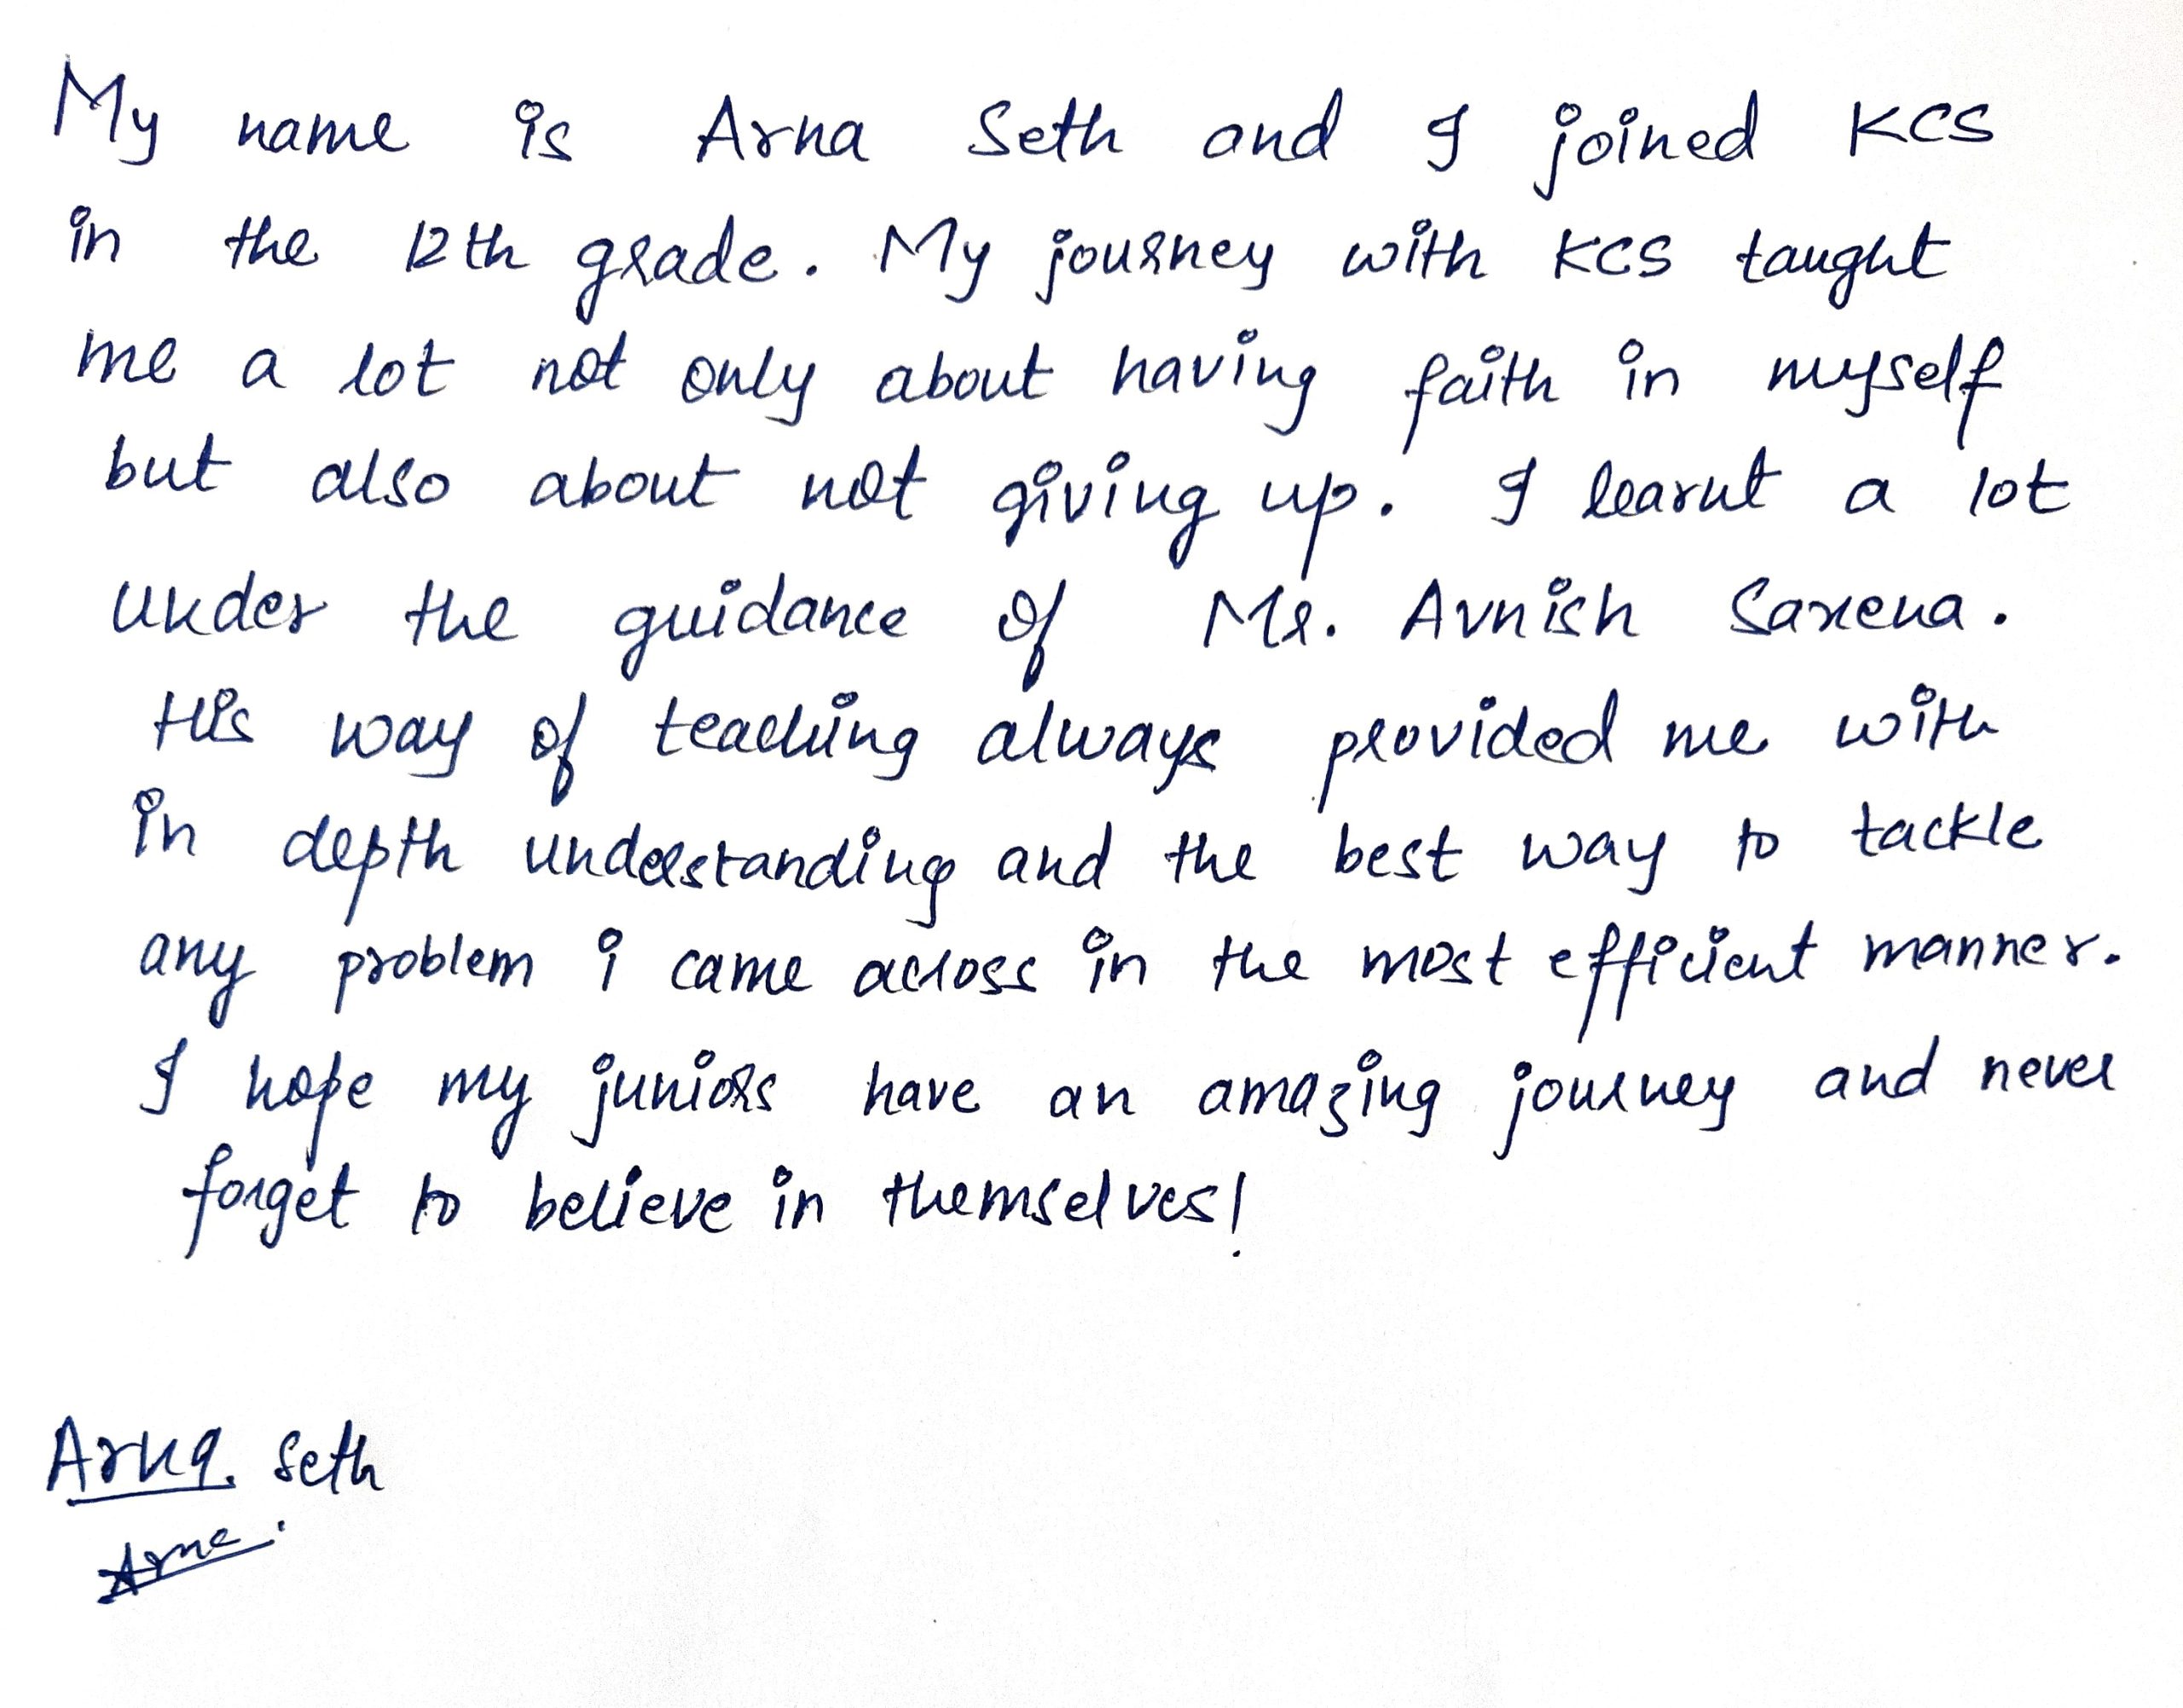 My name is Arna Seth and I joined KCS
in the 12th grade. My journey with KCS taught
me a lot not only about having faith in myself
but also about not giving up. I learnt a lot
under the guidance of Mr. Avnish Saxena.
His way of teaching always provided me with
in depth understanding and the best way to tackle
any problem i came across in the most efficient manner.
I hope my juniors have an amazing journey and never
forget to believe in themselves!
Arna Seth
Arna